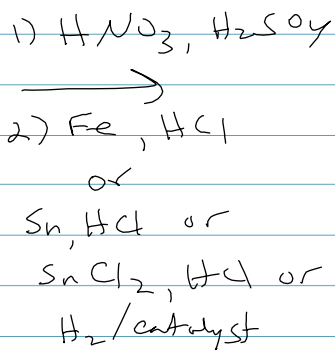 1) HNO3, H2SO4
2) Fe, HCl
or
Sn, HCl or
SnCl2, HCl or
H2/catalyst